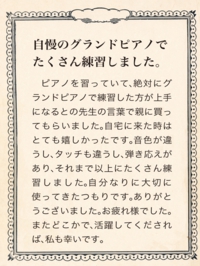 自慢のグランドピアノで
たくさん練習しました。
ピアノを習っていて、絶対にグ
ランドピアノで練習した方が上手
になるとの先生の言葉で親に買っ
てもらいました。自宅に来た時は
とても嬉しかったです。音色が違
うし、タッチも違うし、弾き応えが
あり、それまで以上にたくさん練
習しました。自分なりに大切に
使ってきたつもりです。ありがと
うございました。お疲れ様でした。
またどこかで、活躍してくだされ
ば、私も幸いです。